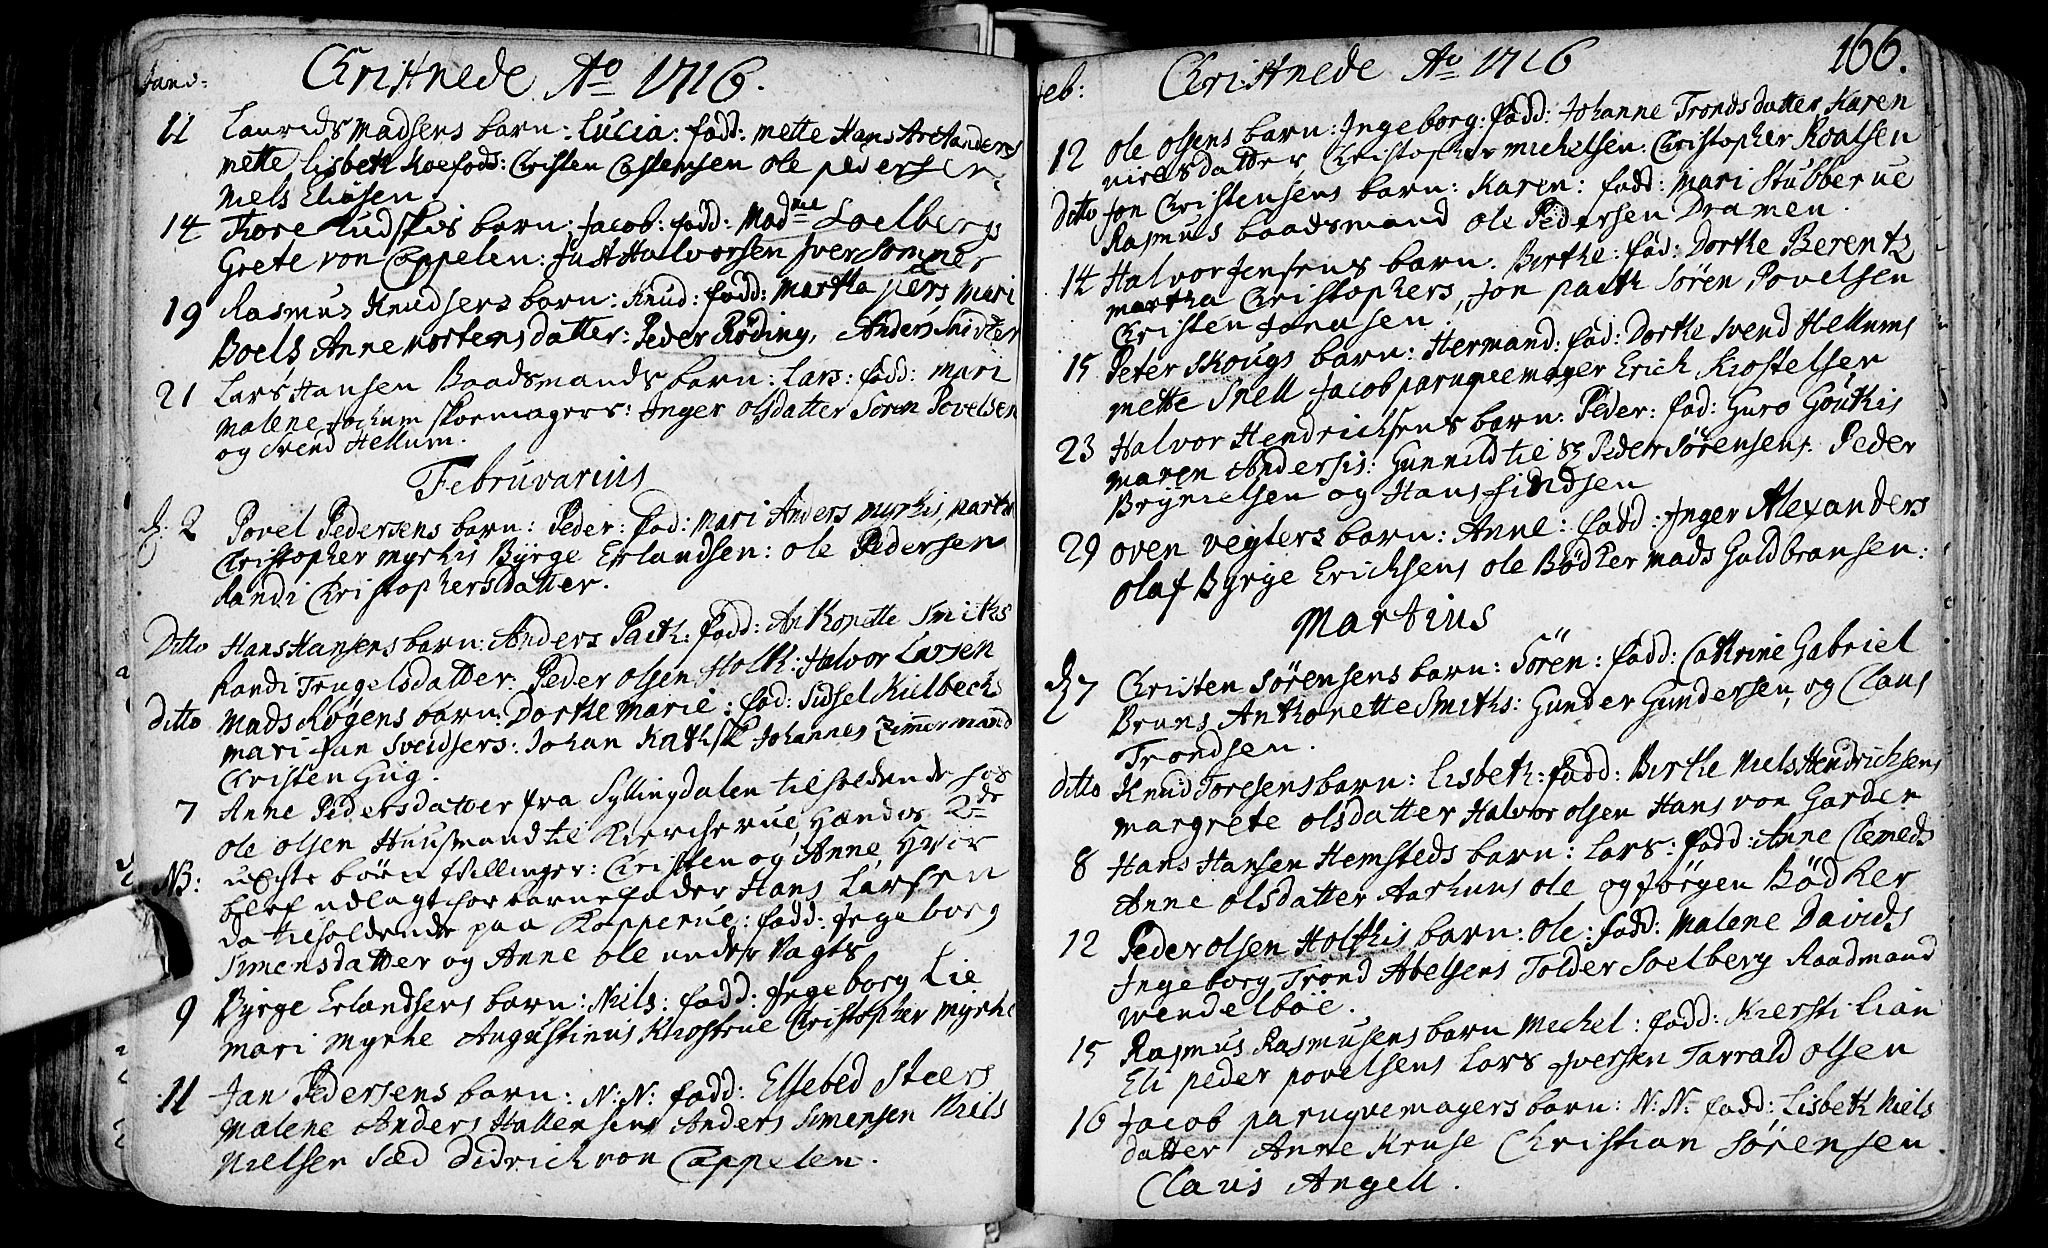 Janv: Christnede Ao 1716.
11 Laurids Madsens barn: Lucia: fadd: Mette Hans Arctanders
Mette Lisbeth Koefods: Christen Castensen Ole Pedersen
Niels Eliesen.
14 Tore Ludskis barn: Jacob: fadd: Madme Soelberg
Grete von Cappelen: Just Halvorsen Jver Sommer
19 Rasmus Knudsens barn: Knud: fadd: Martha Pers Mari
Boels Anne Mortensdatter: Peder Röding, Anders
21 Lars Hansen Baadsmands barn: Lars: fadd: Mari
Malene Jochum Skoemagers: Inger Olsdatter Sören Povelsen
og Svend Hellum.
Februvarius
d. 2 Povel Pedersens barn: Peder: fad: Mari Anders Myrhis,
Christopher Myrhis Byrge Erlandsen: Ole Pedersen
Randi Christophersdatter.
Ditto Hans Hansens barn: Anders Paith: fadd: Anthonette Smiths
Randi Trugelsdatter: Peder Olsen Holth: Halvor Larsen
Ditto Mads Rögens barn: Dorthe Marie: fad: Sidsel Kielbecks
Mari Jan Sveidsers: Johan Johannes Zimmermand
Christen Gug.
7 Anne Pedersdatter fra Syllingdalen tilholdende hos
Ole Olsen Huusmand til Kircherue, Hendes 2de
NB: uegte börn tvillinger: Christen og Anne, Hvor
blef udlagt for barnefader Hans Larsen
da tilholdende paa Kopperue: fadd: Ingeborg
Simensdatter og Anne Ole under Vagts
9 Byrge Erlandsens barn: Niels: fadd: Ingeborg Lie
Mari Myrhe Augustinus Klostrue Christopher Myrhe
11 Jan Pedersens barn: N: N: fadd: Ellebed Steers
Malene Anders Hallensens Anders Simensen Niels
Nielsen Sæd Didrich von Cappelen.
Feb: Christnede Ao 1716 166.
12 Ole Olsens barn: Ingeborg: fadd: Johanne Tronds datter Karen
Nielsdatter, Christopher Michelsen. Christopher Roalsen
Ditto Jon Christensens barn: Karen: fadd: Mari Stubberue
Rasmus Baadsmand Ole Pedersen Dramen.
14 Halvor Jensens barn. Birthe: fad: Dorthe Berentz
Martha Christophers, Jon Paith Sören Povelsen
Christen Jonsen
15 Peter Skougs barn: Hermand: fad: Dorthe Svend Hellums
Mette Snell Jacob Parugvemager Erich Kiostelsen
23 Halvor Hendrichsens barn: Peder: fad: Guro Göuthis
Maren Andersis: Gunnild til Peder Sörensens. Peder
Brynielsen og Hans findsen
29 Oven Vegters barn: Anne: fadd: Inger Alexanders
Olaf Byrge Ericksens Ole Bödker Mads Guldbransen:
Martius
d. 7 Christen Sörensens barn: Sören: fadd: Cathrine Gabriel
Bruns Anthonette Smiths: Gunder Gundersen, og Claus
Trondsen.
Ditto Knud Toresens barn: Lisbeth: fadd: Birthe Niels Hendrichsens
Margrete Olsdatter Halvor Olsen Hans von Garden
8 Hans Hansen Hemsteds barn: Lars: fadd: Anne Clemeds
Anne Olsdatter Aarhuus Ole og Jörgen Bödker
12 Peder Olsen Holthis barn: Ole: fadd: Malene Davids
Ingeborg Trond Abelsens Tolder Soelberg Raadmand
Wendelboe.
15 Rasmus Rasmusens barn Mechel: fadd: Kiersti Lian
Eli Peder Povelsens Lars Iversen Tarrald Olsen
16 Jacob Parugvemagers barn: N: N: fadd: Lisbeth Niels
datter Anne Kruse Christian Sörensen.
Claus Angell.